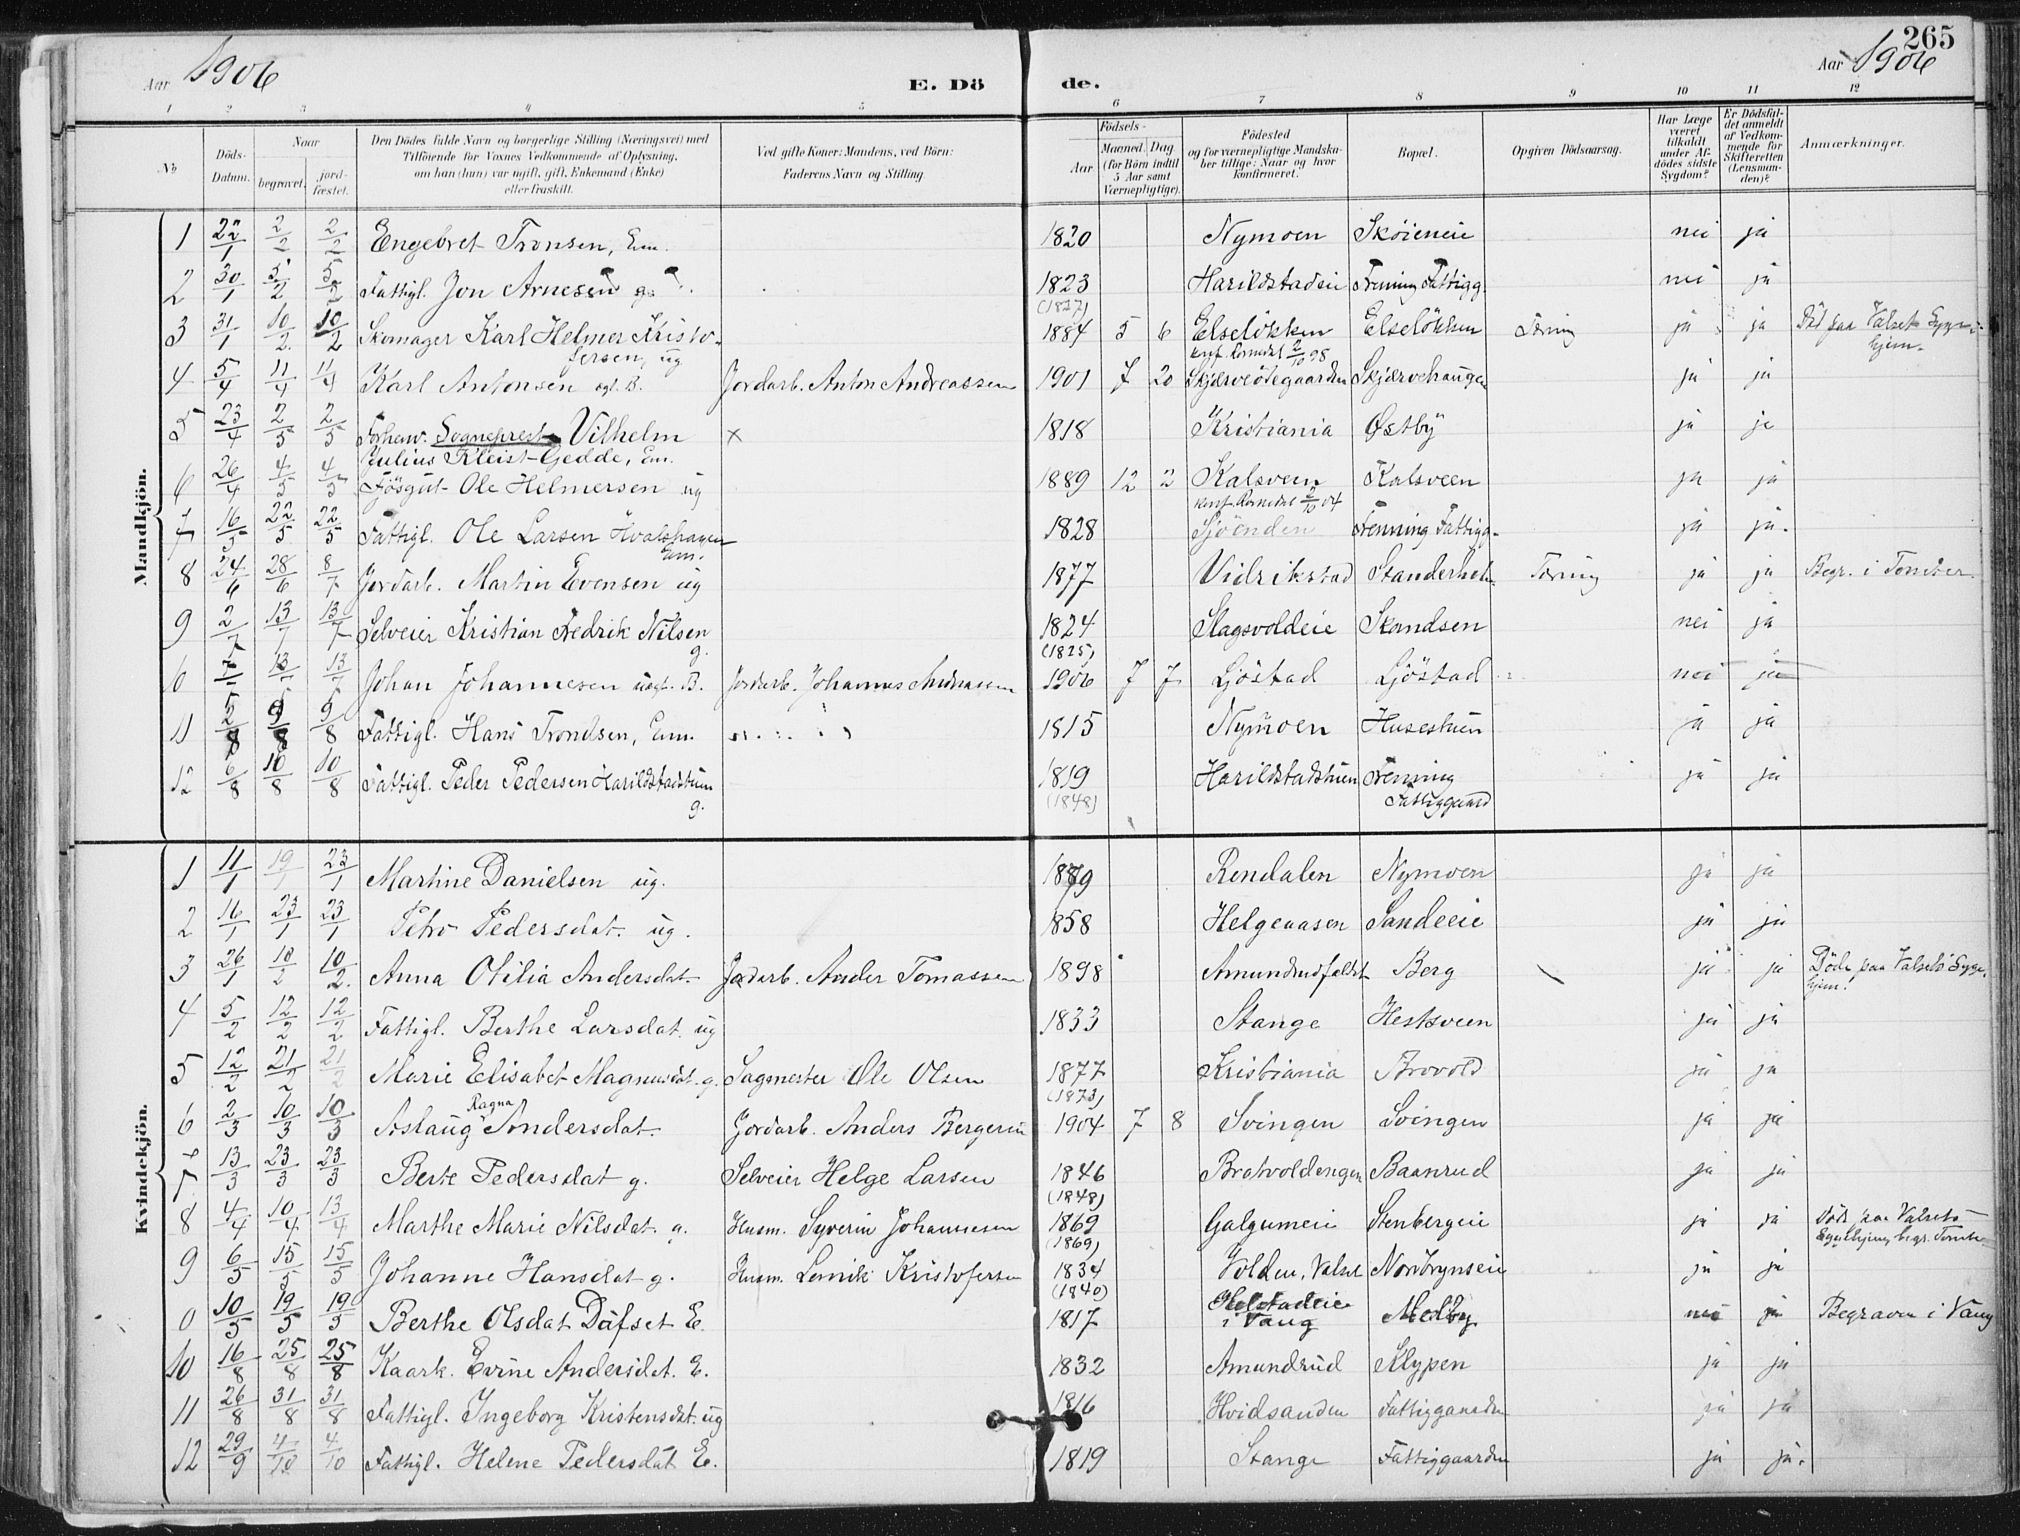 265
Aar 1906
E. Dö
de.
Aar 1906
1 2 3 4 5 6 7 8 9 10 11 12
No
Döds-Datum.
Naar
begravet.
jord-fæstet.
Den Dödes fulde Navn og borgerlige Stilling (Næringsvei) med
Tilföiende for Voxnes Vedkommende af Oplysning,
om han (hun) var ugift, gift, Enkemand (Enke)
eller fraskilt.
Ved gifte Koner: Mandens, ved Börn:
Faderens Navn og Stilling.
Födsels-
Aar
Maaned.
Dag
(for Börn indtil
5 Aar samt
Værnepligtige).
Födested
og for værnepligtige Mandska-
ber tillige: Naar og hvor
konfirmeret.
Bopæl.
Opgiven Dödsaarsag.
Har Læge
været
tilkaldt
under Af-
dödes sidste
Sygdom?
Er Dödsfal-
det anmeldt
af Vedkom-
mende for
Skifteretten
(Lensman-
den)?
Anmærkninger.
Mandkjön.
1 22/1 2/2 2/2 Engebret Tronsen, Em. 1820 Nymoen Sköieneie nei ja
2 30/1 5/2 5/2 Fattigl. Jon Arnesen g. 1823 (1827) Harildstadeie Frenning Fattigg. nei ja
3 31/1 10/2 10/2 Skomager Karl Helmer Kristo-
fersen, ug 1884 5 6 Elselökken Elselökken Tæring ja ja Död paa Valset Syge-
hjem.
konf. Romedal 2/10 98
4 5/4 11/4 11/4 Karl Antonsen egt. B. Jordarb. Anton Andreassen 1901 7 20 Skjærveötegaarden Skjærvehaugen ja ja
5 23/4 2/5 2/5 Forhenv. Sogneprest Vilhelm × 1818 Kristiania Østby ja ja
Julius Kleist-Gedde, Em.
6 26/4 4/5 4/5 Fösgut Ole Helmersen ug 1889 12 2 Kalsveen Kalsveen ja ja
konf. Romedal 2/10 04
7 16/5 22/5 22/5 Fattigl. Ole Larsen Hvalshagen
Em. 1828 Sjöenden Frenning Fattigg. ja ja.
8 24/6 28/6 8/7 Jordarb. Martin Evensen ug 1877 Vidrikstad Tæring ja ja Begr. i Tomter.
9 2/7 13/7 13/7 Selveier Kristian Fredrik Nilsen
g. 1824 (1825) Slagsvoldeie Skandsen nei ja
10 13/7 13/7 Johan Johannesen uegt. B. Jordarb. Johannes Andreassen 1906 7 7 Ljöstad Ljöstad nei ja
11 5/8 9/8 9/8 Fattigl. Hans Trondsen, Em. 1815 Nymoen Husestuen ja ja
12 6/8 10/8 10/8 Fattigl. Peder Pedersen Harildstadstuen
g. 1819 (1848) Harildstadstuen Frenning
Fattiggaard ja ja
Kvindekjön.
1 11/1 19/1 23/1 Martine Danielsen ug. Rendalen Nymoen ja ja
2 16/1 23/1 23/1 Petro Pedersdat. ug. 1858 Helgeaasen Sandeeie ja ja
3 26/1 10/2 10/2. Anna Otilia Andersdat. Jordarb. Ander Tomassen 1898 Amundrudfaldet Berg ja ja Döde paa Valsets Syge-
hjem.
4 5/2 12/2 12/2 Fattigl. Berthe Larsdat. ug 1833 Stange Hestsveen ja ja
5 12/2 21/2 21/2 Marie Elisabet Magnusdat. g. Sagmester Ole Olsen 1877 (1873) Kristiania Brovold ja ja
6 2/3 10/3 10/3 Aslaug Ragna Andersdat. Jordarb. Anders Bergerin 1904 7 8 Svingen Svingen ja ja
7 13/3 23/3 23/3 Berte Pedersdat g. Selveier Helge Larsen 1846 (1848) Bratvoldengen Baanrud ja ja
8 4/4 10/4 13/4 Marthe Marie Nilsdat. g. Husm. Syverin Johannesen 1869 (1869) Galgumeie Stenbergeie ja ja Döde paa Valsets
Sygehjem, begr. Tomter
9 6/5 15/5 15/5 Johanne Hansdat g. Husm. Lornik Kristofersen 1834 (1840) Volden, Valset Nordbrynseie ja ja
0 10/5 19/5 19/5 Berthe Olsdat Dufset E. 1817 i Vang Melby nei ja Begraven i Vang
10 16/8 25/8 25/8 Kaark. Evine Andersdat. E. 1832 Amundrud Klypen ja ja
11 26/8 31/8 31/8 Fattigl. Ingeborg Kristensdat. ug 1816 Hvidsanden Fattiggaarden ja ja
12 29/9 4/10 4/10 Fattigl. Helene Pedersdat E. 1819 Stange Fattiggaarden ja ja.